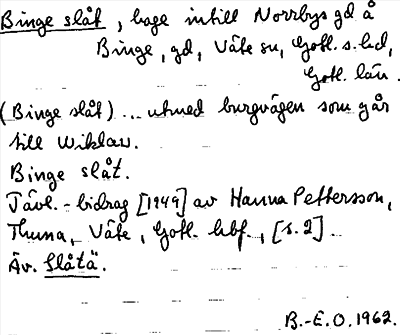 Binge slåt, hage intill Norrbys gd å
Binge, gd, Väte sn, Gotl. s. hd,
Gotl. län.
(Binge slåt) ... utmed burgvägen som går
till Wiklau.
Binge slåt.
Tävl.-bidrag [1949] av Hanna Pettersson,
Thuna, Väte, Gotl. hbf., [s. 2]
Äv. Slåtä.
B.-E.O. 1962.